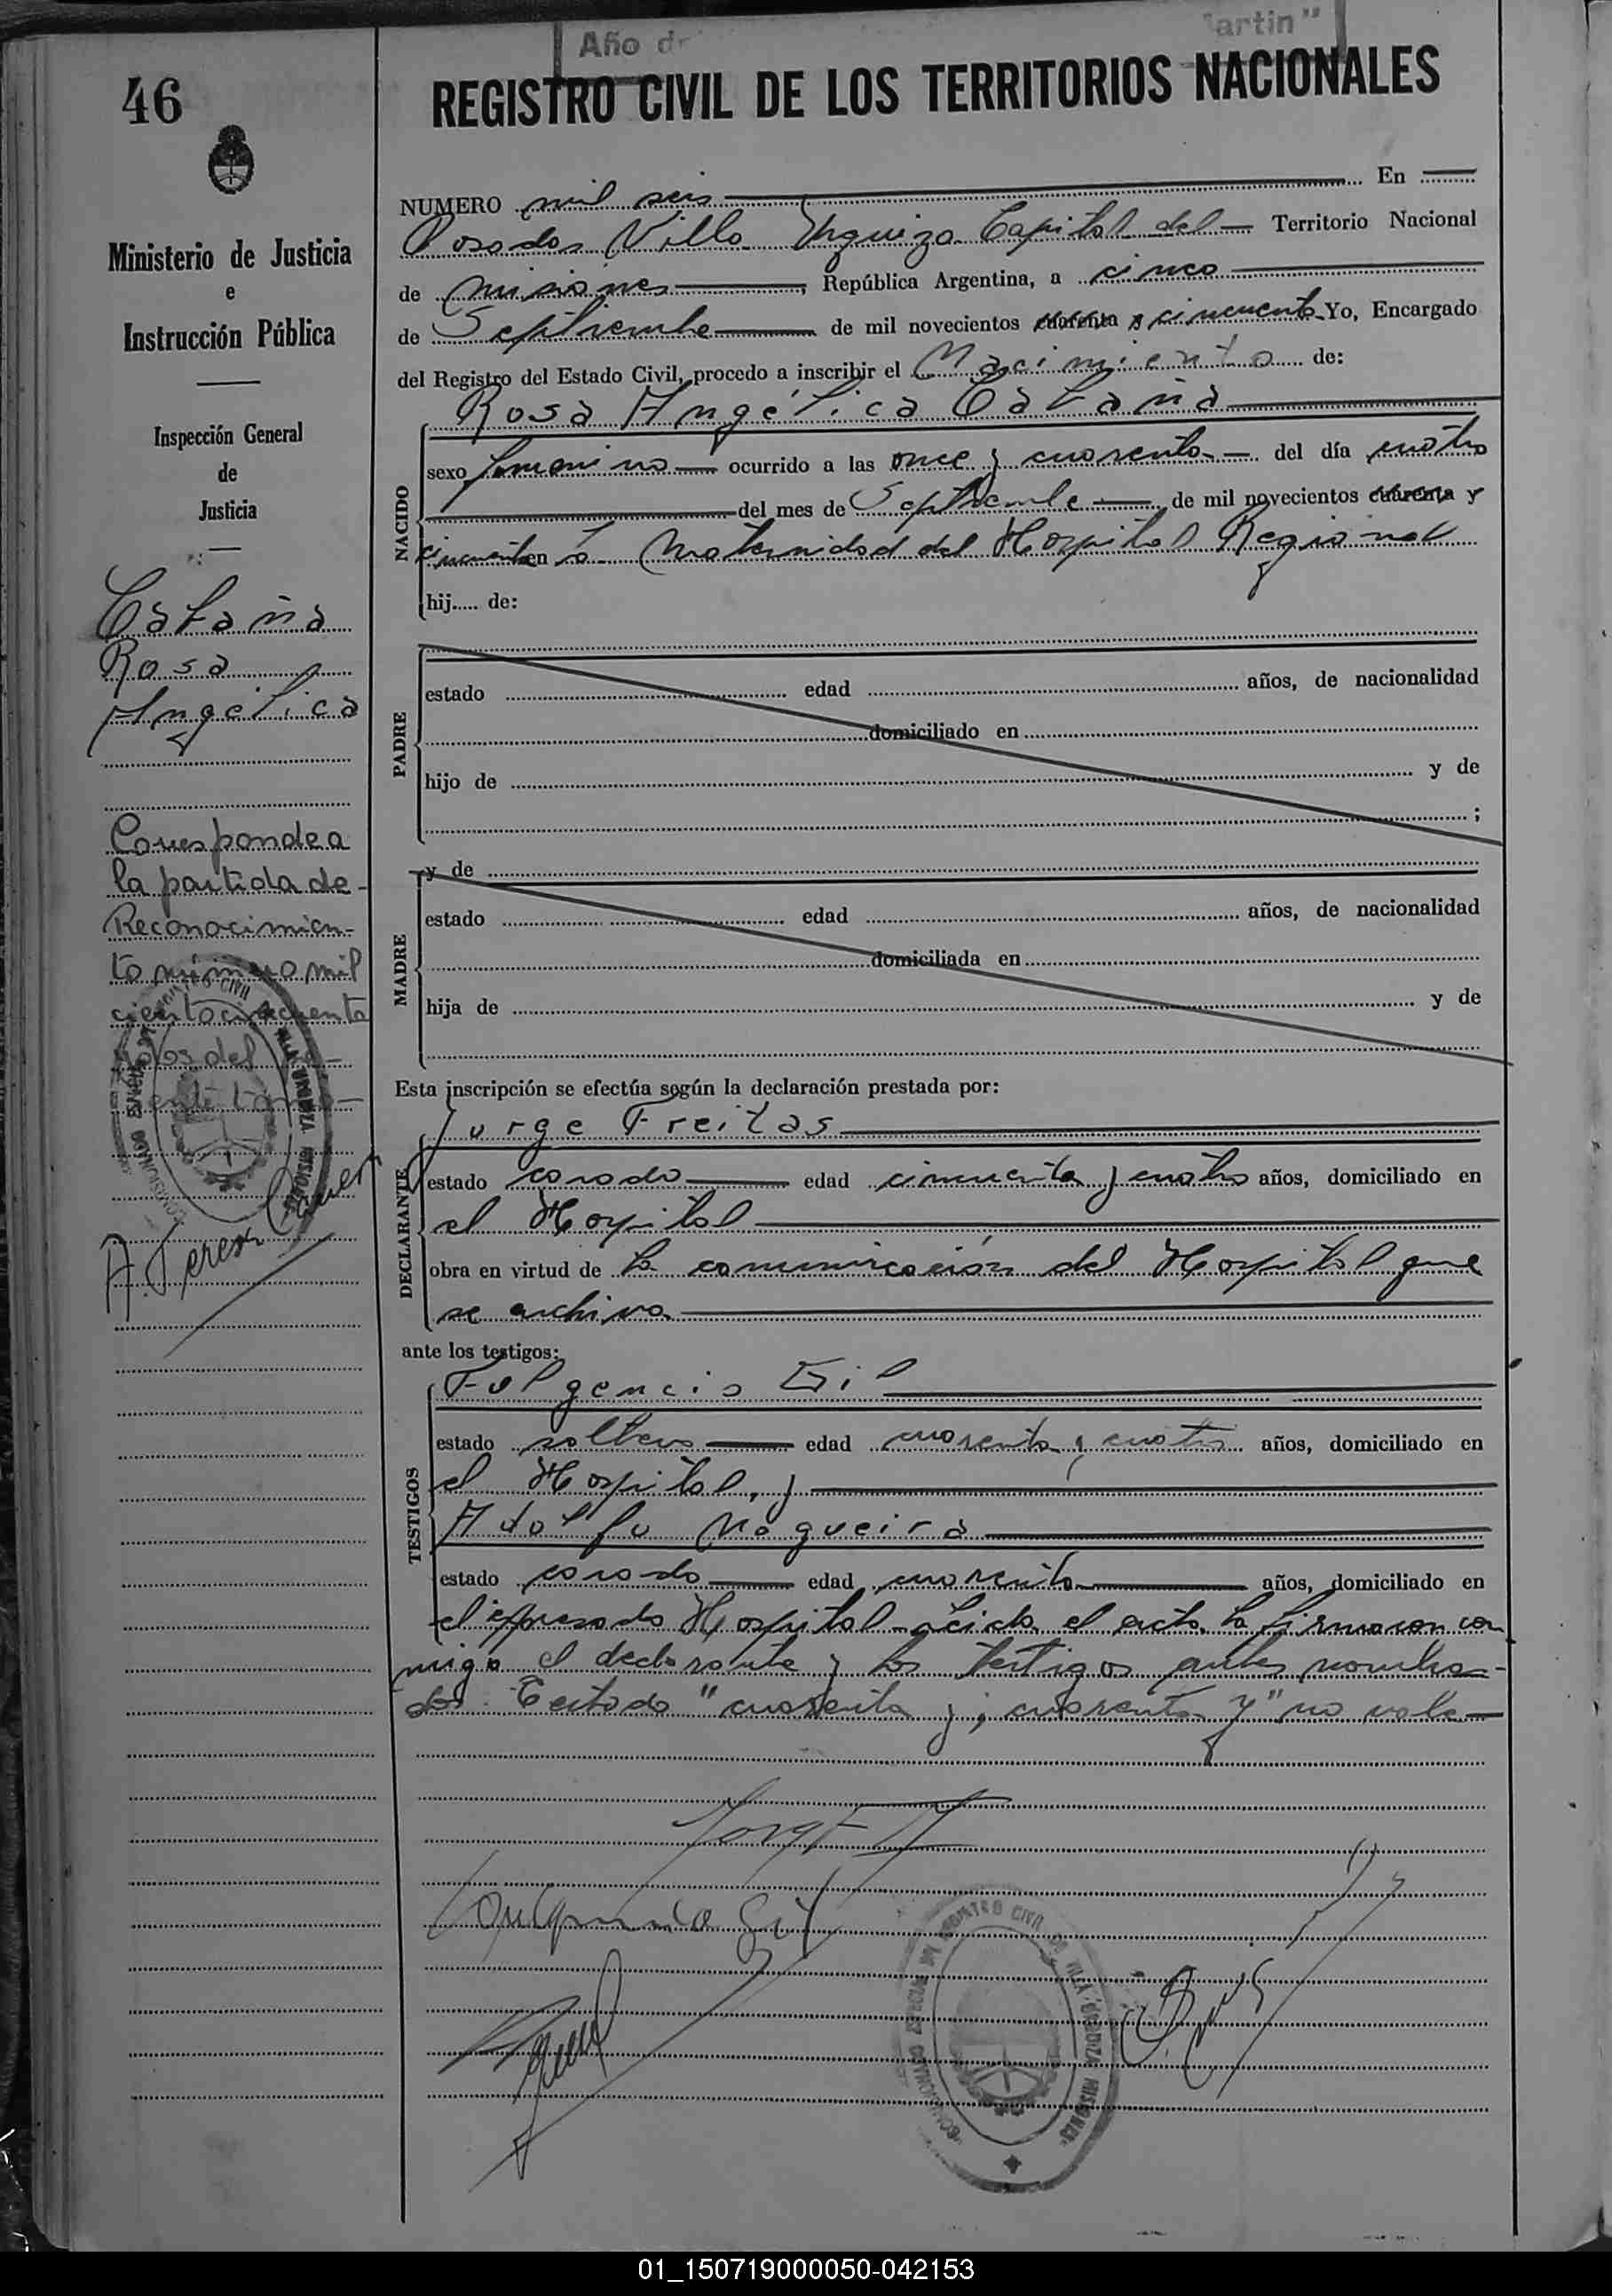 Año de
artin"
46
REGISTRO CIVIL DE LOS TERRITORIOS NACIONALES
Ministerio de Justicia
e
Instrucción Pública
Inspección General
de
Justicia
Cataña
Rosa
Angélica
Corresponde a
la partida de
Reconocimien-
to número mil
ciento cincuenta
NUMERO mil seis En
Posadas Villa Urquiza Capital del Territorio Nacional
de misiones, República Argentina, a cinco
de Septiembre de mil novecientos cuarenta y cincuenta Yo, Encargado
del Registro del Estado Civil, procedo a inscribir el Nacimiento de:
Rosa Angélica Cataña
NACIDO
sexo femenino ocurrido a las once y cuarenta del día cuatro
del mes de Septiembre de mil novecientos cuarenta y
cincuenta en la Maternidad del Hospital Regional
hij..... de:
PADRE
estado edad años, de nacionalidad
domiciliado en
hijo de y de
;
MADRE
y de
estado edad años, de nacionalidad
domiciliada en
hija de y de
Esta inscripción se efectúa según la declaración prestada por:
DECLARANTE
Jorge Freitas
estado casado edad cincuenta y cuatro años, domiciliado en
el Hospital
obra en virtud de la comunicación del Hospital que
se archiva
ante los testigos:
TESTIGOS
Fulgencio Gil
estado soltero edad cuarenta y cuatro años, domiciliado en
el Hospital, y
Adolfo Nogueira
estado casado edad cuarenta años, domiciliado en
el expresado Hospital - Leída el acta la firmaron con
migo el declarante y los testigos antes nombra-
dos. Testado "cuarenta y; cuarenta y" no vale
01_150719000050-042153